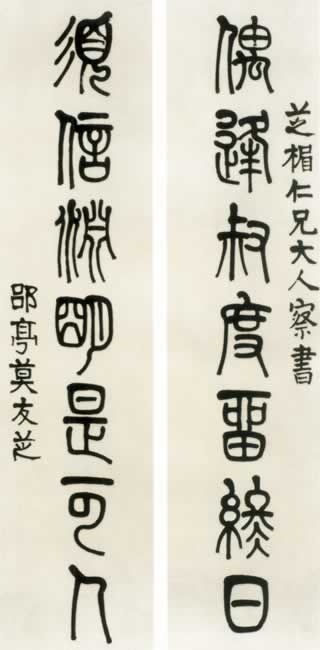 芝楣仁兄大人察書
偶逢叔度畱終日
須信淵朙是可人
郘亭莫友芝